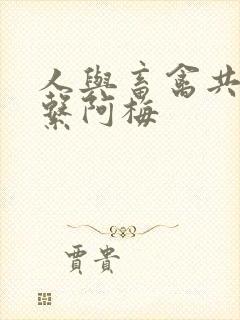 人與畜禽共
繫阿梅
賈貴